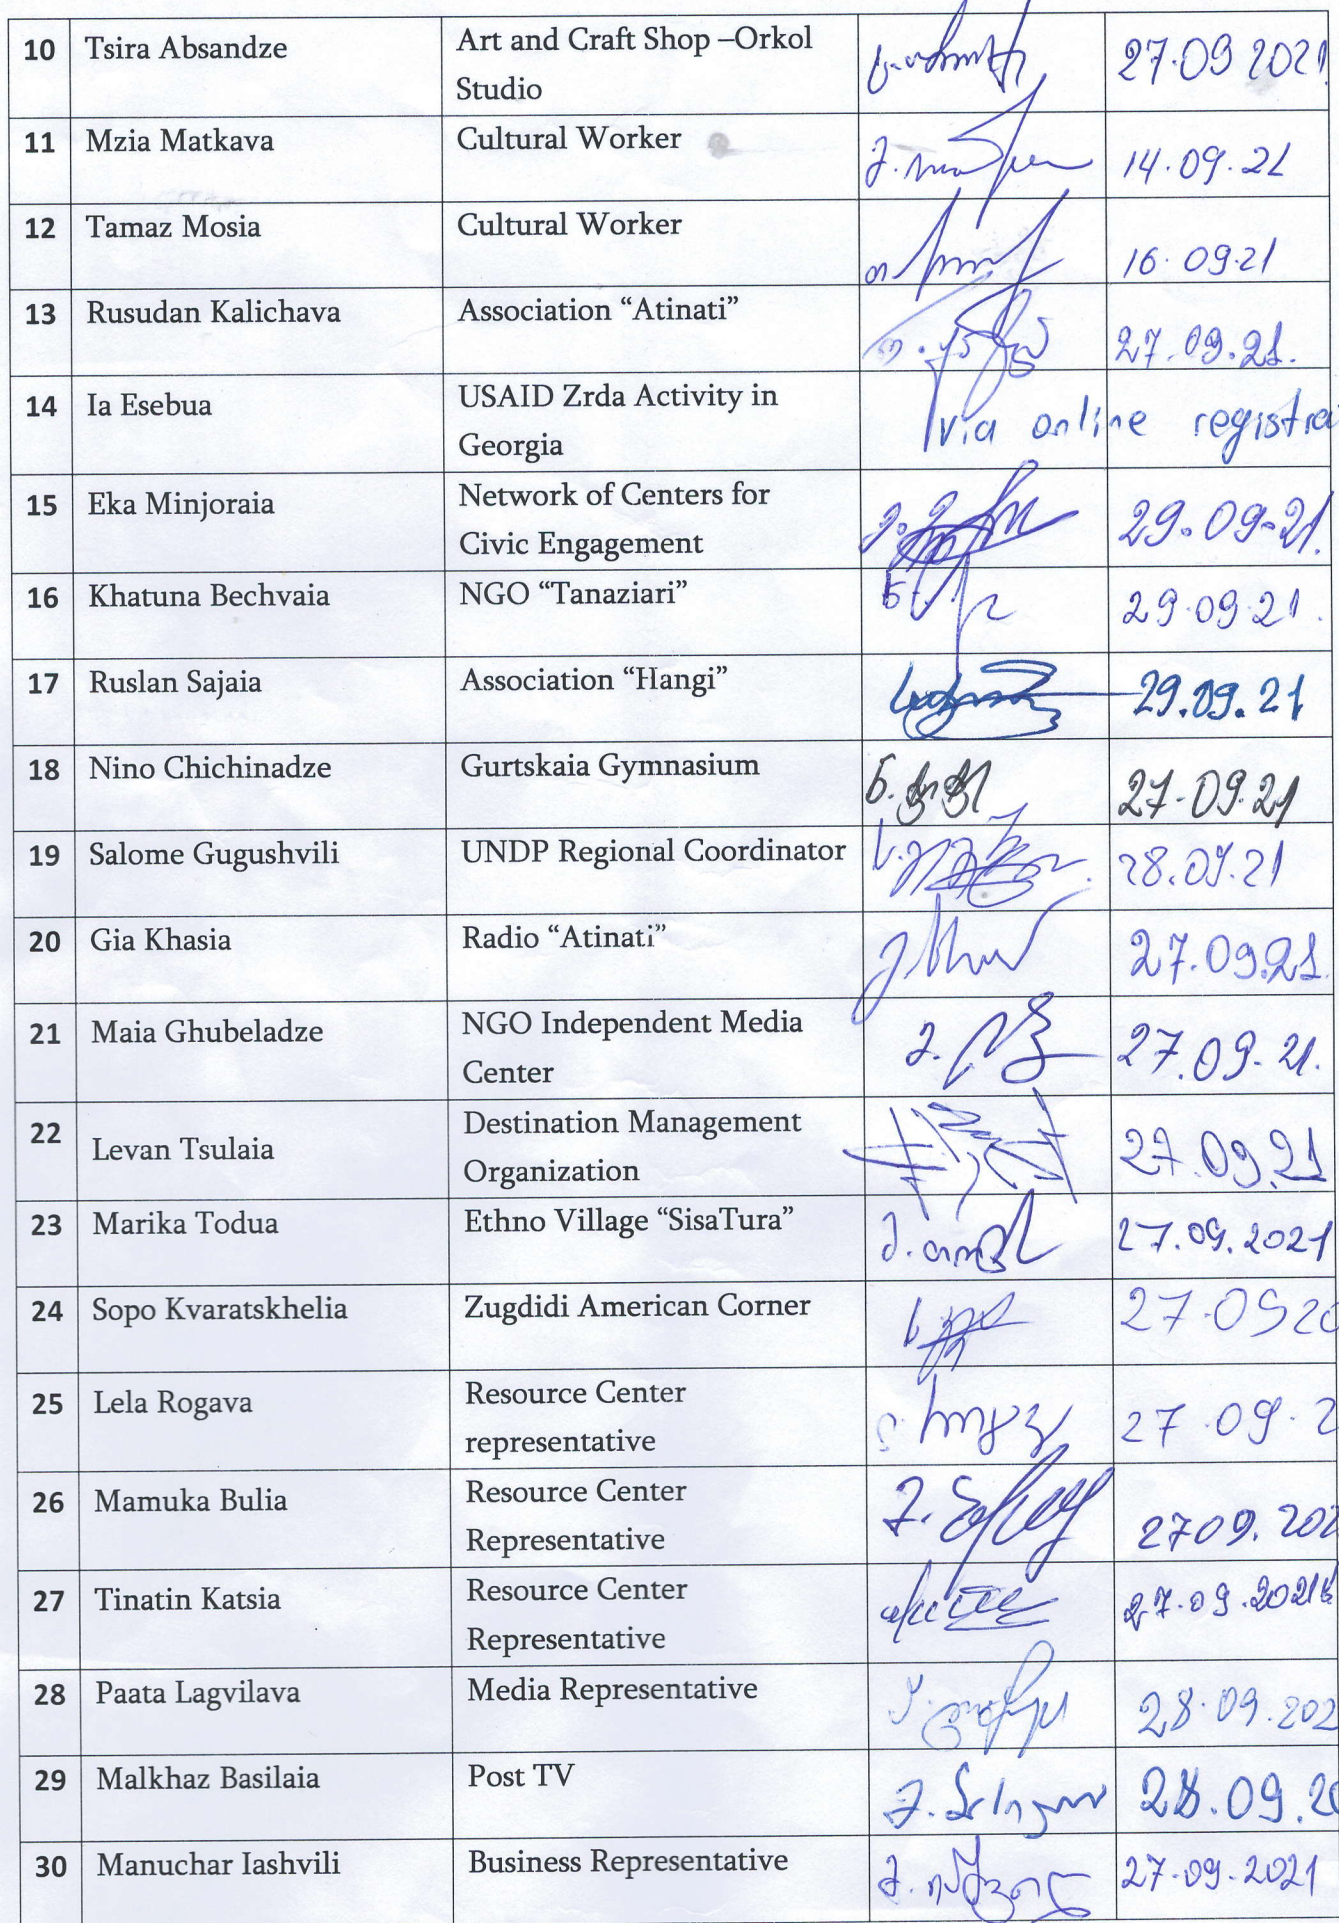 10 Tsira Absandze Art and Craft Shop –Orkol 27.09 2021
Studio
11 Mzia Matkava Cultural Worker 14.09.21
12 Tamaz Mosia Cultural Worker 16.09.21
13 Rusudan Kalichava Association “Atinati” 27.09.21.
14 Ia Esebua USAID Zrda Activity in via online registra
Georgia
15 Eka Minjoraia Network of Centers for 29.09-21.
Civic Engagement
16 Khatuna Bechvaia NGO “Tanaziari” 29.09.21.
17 Ruslan Sajaia Association “Hangi” 29.09.21
18 Nino Chichinadze Gurtskaia Gymnasium 27.09.21
19 Salome Gugushvili UNDP Regional Coordinator 28.09.21
20 Gia Khasia Radio “Atinati” 27.09.21.
21 Maia Ghubeladze NGO Independent Media 27.09.21.
Center
22 Levan Tsulaia Destination Management 27.09.21
Organization
23 Marika Todua Ethno Village “SisaTura” 27.09.2021
24 Sopo Kvaratskhelia Zugdidi American Corner 27.09 20
25 Lela Rogava Resource Center 27.09.2
representative
26 Mamuka Bulia Resource Center 2709.202
Representative
27 Tinatin Katsia Resource Center 27.09.2021
Representative
28 Paata Lagvilava Media Representative 28.09.202
29 Malkhaz Basilaia Post TV 28.09.20
30 Manuchar Iashvili Business Representative 27.09.2021